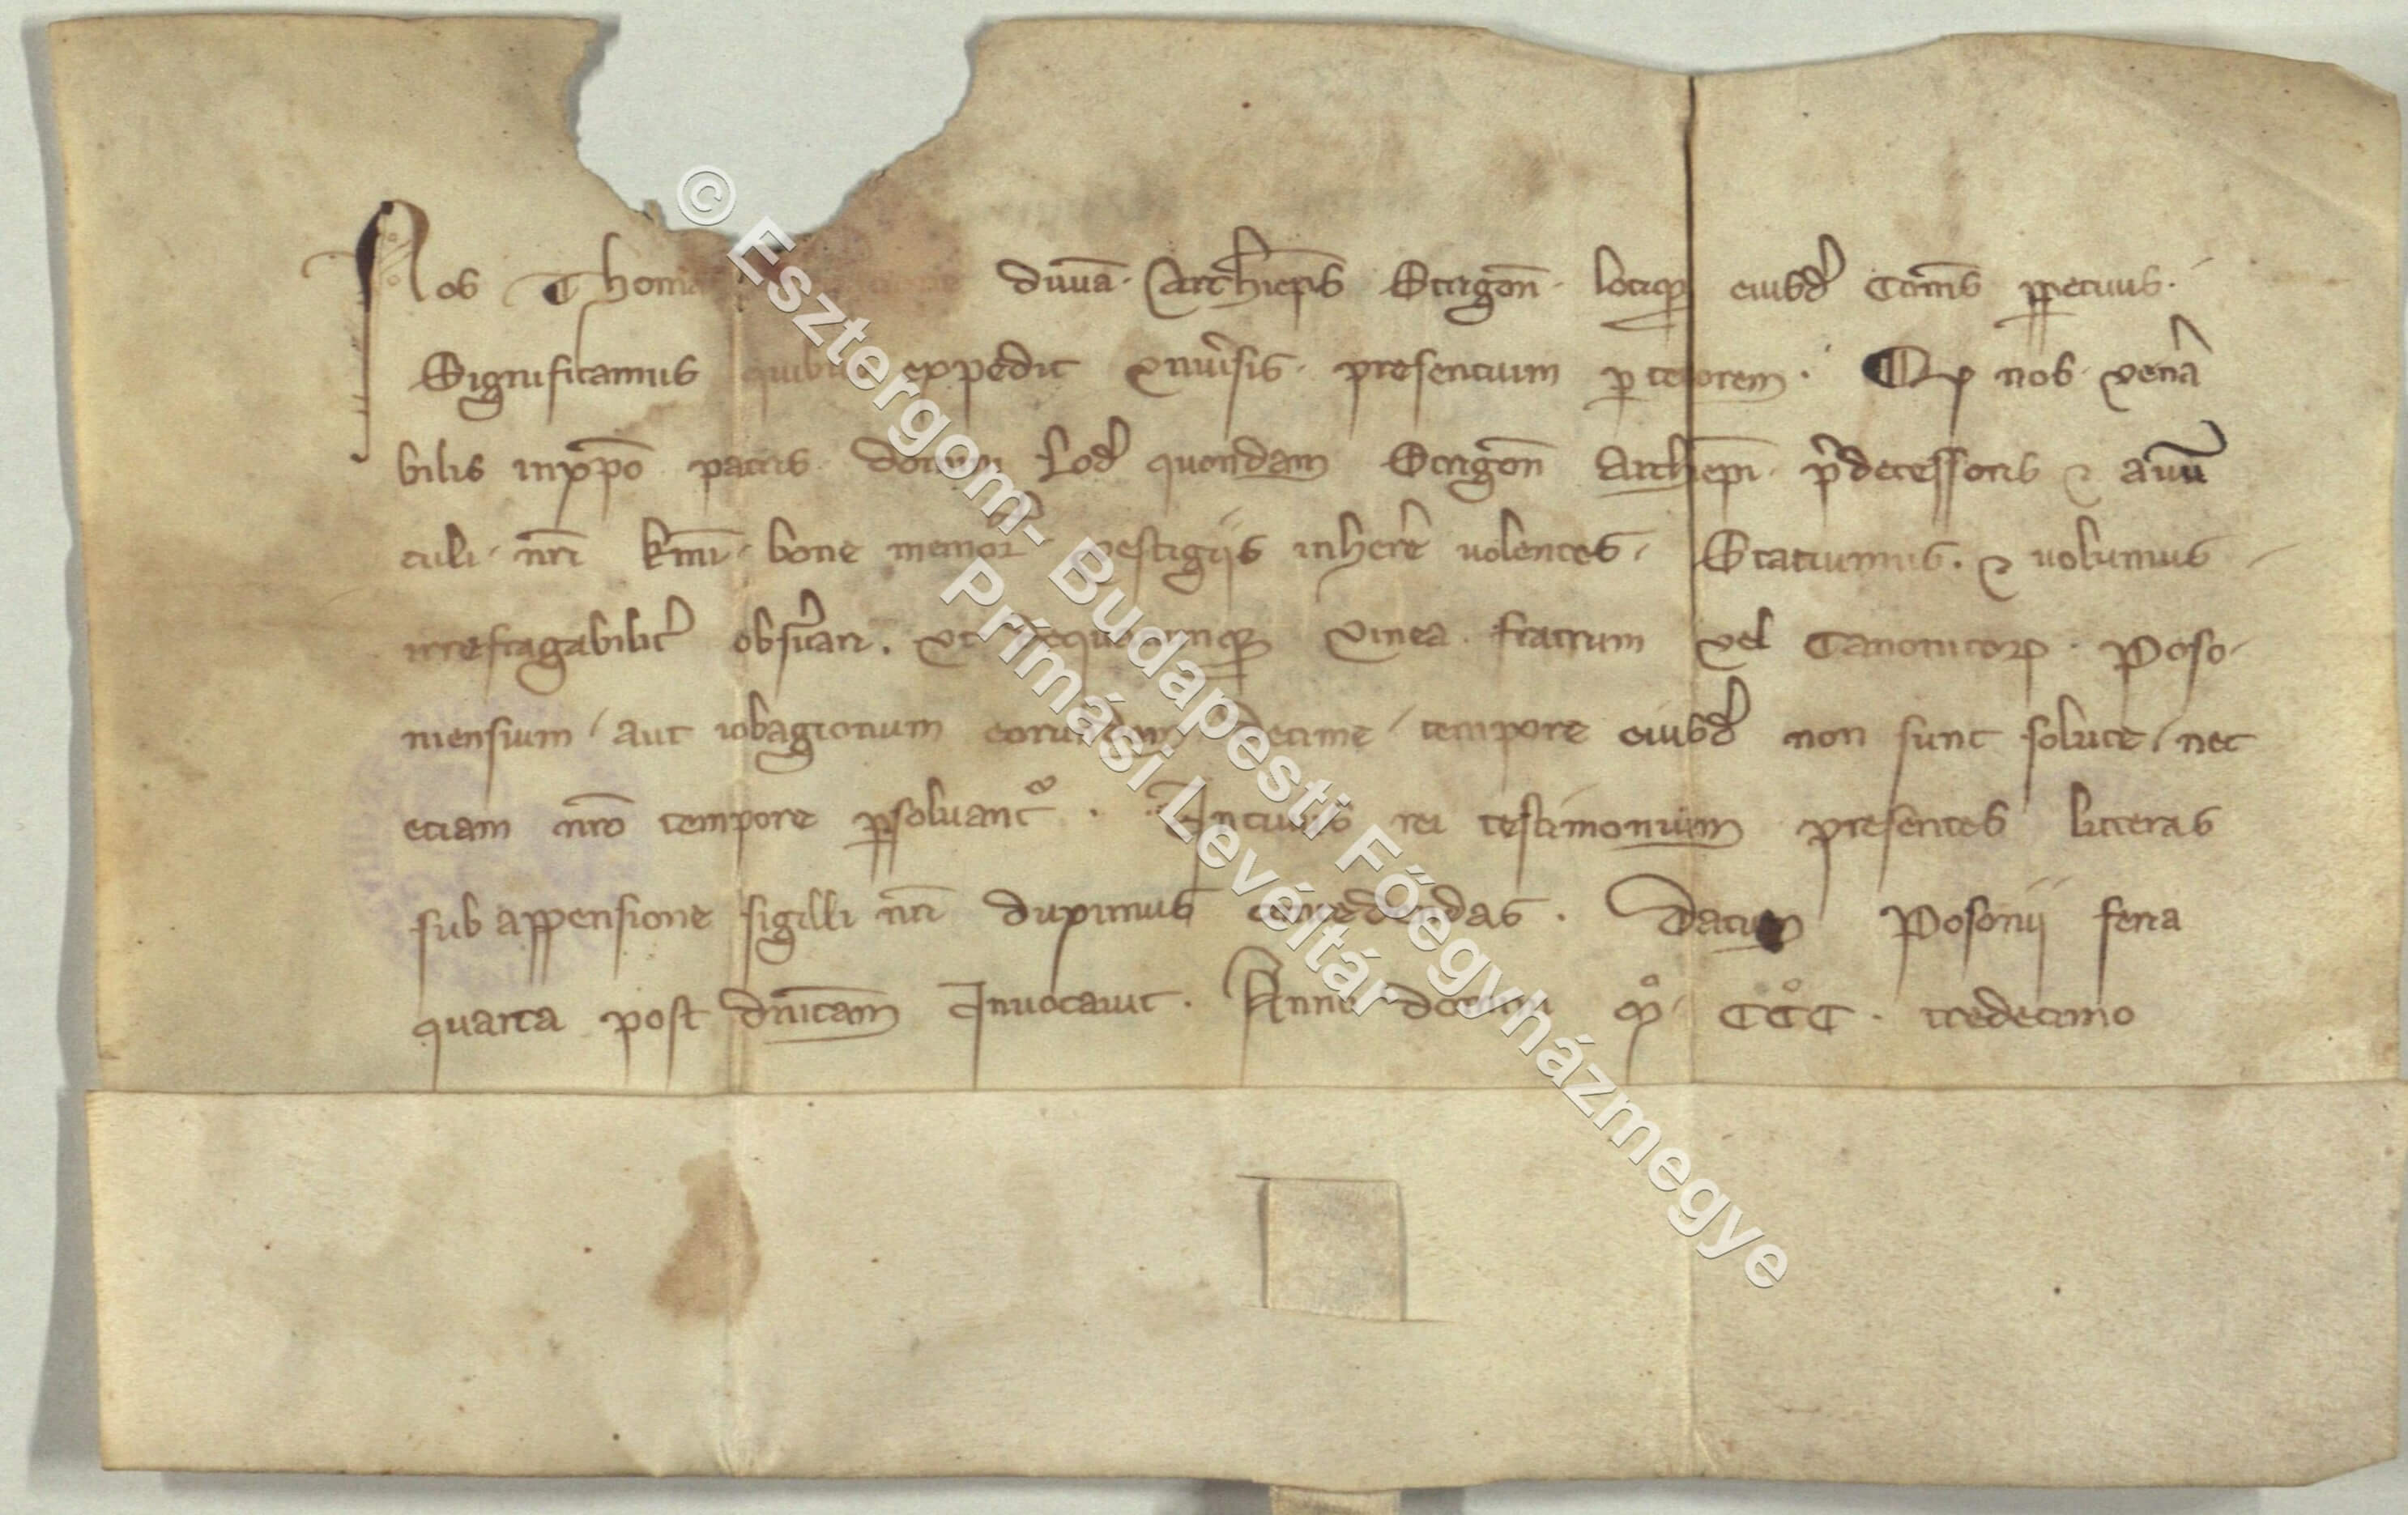 Nos Thoma duuā. Archiep̄s Strigon̄. locique eiusd̕ Com̄s ꝑpetuus.
Significamus quibus expedit vniu̕sis. presentium ꝑ tenorem. Qꝫ nos venẽa
bilis inxp̄o patris domini Lod̕ quondam Strigon̄ Archiep̄i. p̕decessoris ⁊ auū
culi. nr̄i km̄i. bone memor̄ vestigijs inherẽ volentes. Statuimus. ⁊ uolumus
irrefragabilit̕ obs̕uari. vt dequacunque vinea fratrum vel Canonicorꝝ. Poso-
niensium aut iobagionum eorundem decime tempore eiusd̕ non sunt solute, nec
etiam nr̄o tempore ꝑsoluant᷑. Incuius rei testimonium presentes litteras
sub appensione sigilli nr̄i duximus concedendas. Datum Posonij feria
quarta post dn̄icam Inuocauit. Anno domini mͦ. CCͦC. tredecimo
© Esztergom- Budapesti Főegyházmegye
Prímási Levéltár